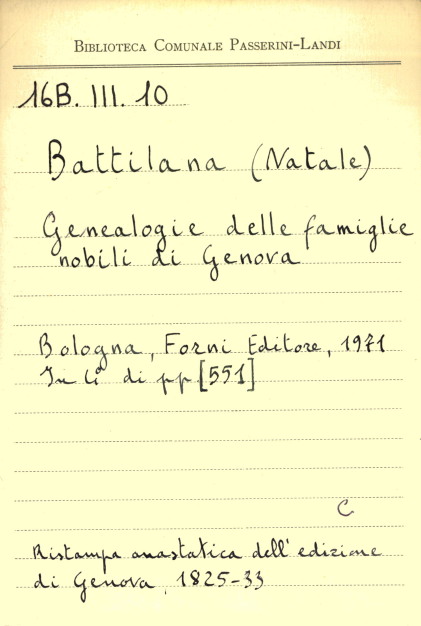 BIBLIOTECA COMUNALE PASSERINI-LANDI
16B. III. 10
Battilana (Natale)
Genealogie delle famiglie
nobili di Genova
Bologna, Forni Editore, 1971
In 4° di pp [551]
C
Ristampa anastatica dell'edizione
di Genova, 1825-33